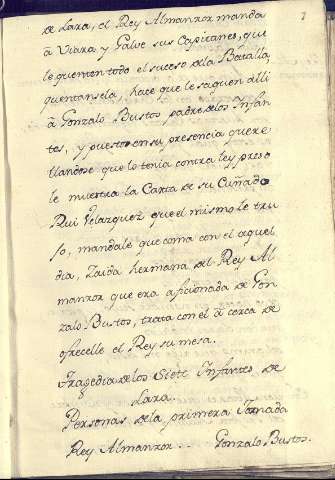 1
de Lara, el Rey Almanzor manda
â Viara y Galve sus Capitanes, que
le quenten todo el suceso de la Batalla,
quentansela, hace que le saquen alli
â Gonzalo Bustos padre de los Infan
tes, y puesto en su presencia quere
llandose que lo tenia contra ley preso
le muestra la Carta de su Cuñado
Rui Velazquez que el mismo le tru
jo, mandale que coma con el aquel
dia, Zaida hermana del Rey Al
manzor que era aficionada de Gon
zalo Bustos, trata con el â cerca de
ofrecelle el Rey su mesa.
Tragedia de los Siete Infantes de
Lara.
Personas de la primera Jornada
Rey Almanzor.. Gonzalo Bustos.